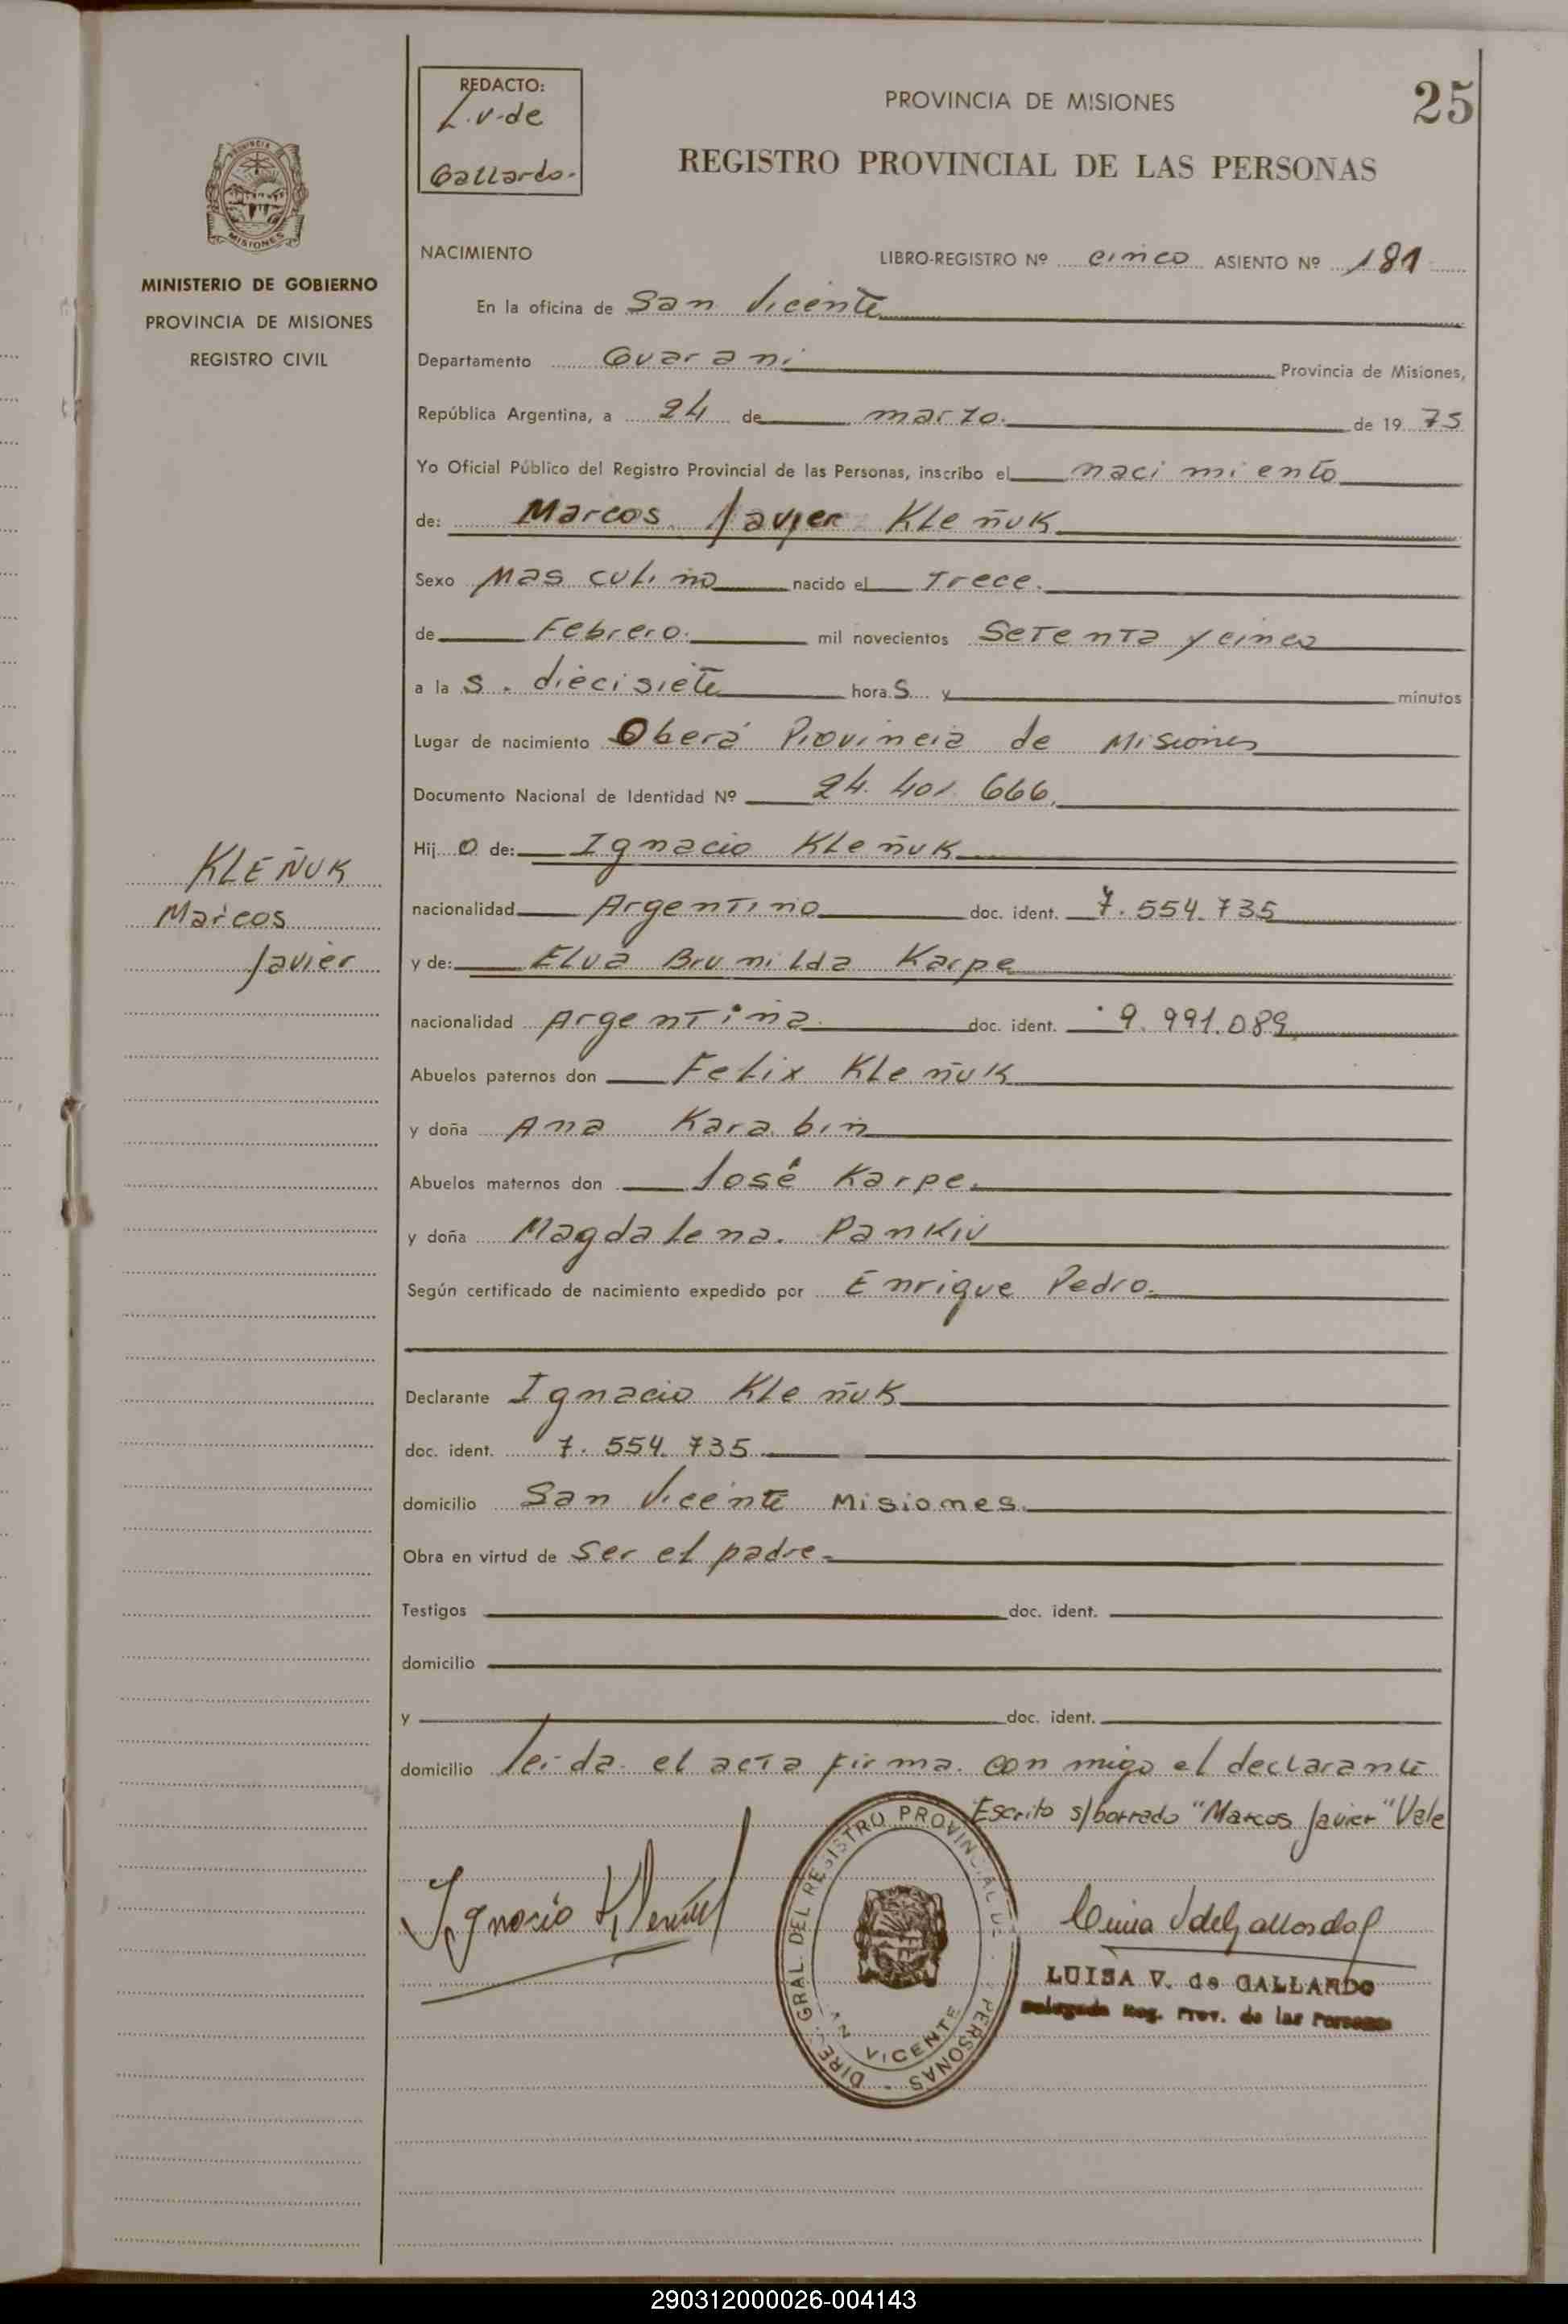 REDACTO:
L.V. de
Gallardo.
PROVINCIA DE MISIONES
25
REGISTRO PROVINCIAL DE LAS PERSONAS
PROVINCIA
MISIONES
MINISTERIO DE GOBIERNO
PROVINCIA DE MISIONES
REGISTRO CIVIL
NACIMIENTO LIBRO-REGISTRO Nº cinco ASIENTO Nº 181
En la oficina de San Vicente
Departamento Guarani Provincia de Misiones,
República Argentina, a 24 de marzo. de 1975
Yo Oficial Público del Registro Provincial de las Personas, inscribo el nacimiento
de: Marcos Javier Kleñuk
Sexo Masculino nacido el Trece.
de Febrero. mil novecientos Setenta y cinco
a las. diecisiete horas y minutos
Lugar de nacimiento Oberá Provincia de Misiones
Documento Nacional de Identidad Nº 24.401.666.
Hijo de: Ignacio Kleñuk
KLEÑUK
Marcos
Javier
nacionalidad Argentino doc. ident. 7.554.735
y de: Elva Brunilda Karpe
nacionalidad Argentina doc. ident. 9.991.089
Abuelos paternos don Felix Kleñuk
y doña Ana Karabin
Abuelos maternos don José Karpe.
y doña Magdalena. Pankiv
Según certificado de nacimiento expedido por Enrique Pedro.
Declarante Ignacio Kleñuk
doc. ident. 7.554.735
domicilio San Vicente Misiones.
Obra en virtud de Ser el padre.
Testigos doc. ident.
domicilio
y doc. ident.
domicilio leida el acta firma conmigo el declarante
Escrito s/borrado "Marcos Javier" Vale
Ignacio Kleñuk
DIRE. GRAL. DEL REGISTRO PROVINCIAL DE PERSONAS
AN VICENTE
Luisa V de Gallardo
LUISA V. de GALLARDO
Delegada Reg. Prov. de las Personas
290312000026-004143